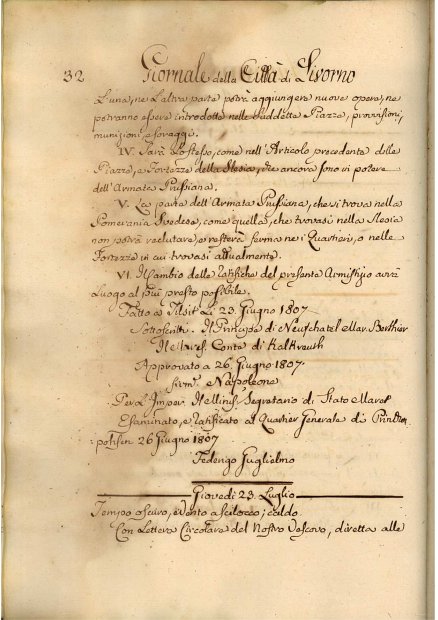 32 Giornale della Città di Livorno
L'una, ne l'altra parte potrà aggiungere nuove opere, ne
potranno essere introdotte nelle suddette Piazze, provvisioni,
munizioni, e foraggi.
IV. Sarà lo stesso, come nell'Articolo precedente delle
Piazze, e Fortezze della Slesia, che ancora sono in potere
dell'Armata Prussiana.
V. La parte dell'Armata Prussiana, che si trova nella
Pomerania Svedese, come quella, che trovasi nella Slesia
non potrà reclutare, e resterà ferma ne i Quartieri, o nelle
Fortezze in cui trovasi attualmente.
VI. Il cambio delle ratifiche del presente Armistizio avrà
Luogo al più presto possibile.
Fatto a Tilsit Li 23. Giugno 1807
Sottoscritti. Il Principe di Neufchatel Mar. Berthier
Il Maresc. Conte di Kalkreuth
Approvato a 26. Giugno 1807.
firm. Napoleone
Per l'Imper. Segretario di Stato Maret
Esaminato, e ratificato al Quartier Generale di
26 Giugno 1807
Federigo Guglielmo
Giovedì 23. Luglio
Tempo oscuro, e vento a scilocco; caldo.
Con Lettera Circolare del Nostro Vescovo, diretta alle